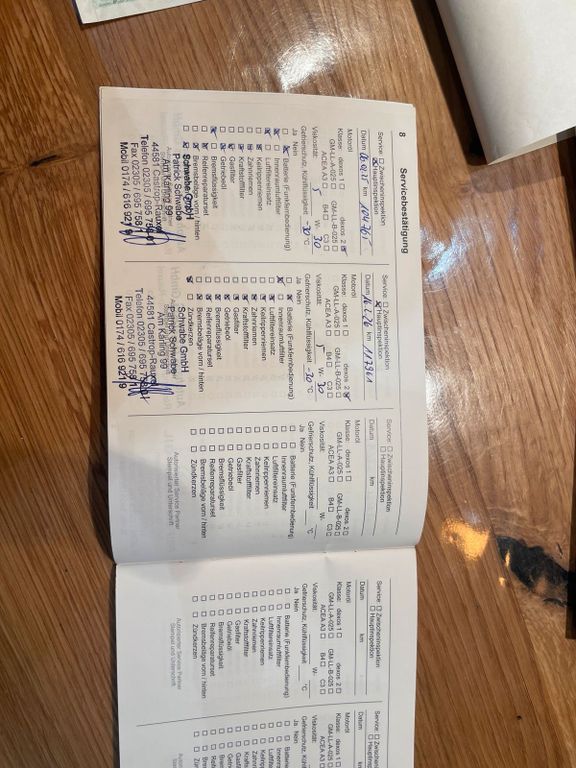 8
Servicebestätigung
Service: Zwischeninspektion
Hauptinspektion
Datum km 104765
Motoröl
Klasse: dexos 1 dexos 2
GM-LL-A-025 GM-LL-B-025
ACEA A3 B4 C3
Viskosität: 5 W- 30
Gefrierschutz, Kühlflüssigkeit -30 °C
Ja Nein
Batterie (Funkfernbedienung)
Innenraumluftfilter
Luftfiltereinsatz
Keilrippenriemen
Zahnriemen
Kraftstofffilter
Gasfilter
Getriebeöl
Bremsflüssigkeit
Reifenreparaturset
Bremsbeläge vorn / hinten
Zündkerzen
Schwabe GmbH
Patrick Schwabe
Am Kärling 99
44581 Castrop-Rauxel
Telefon 02305 / 695
Fax 02305 / 695 758
Mobil 0174 / 616 921 9
Service: Zwischeninspektion
Hauptinspektion
Datum km 117961
Motoröl
Klasse: dexos 1 dexos 2
GM-LL-A-025 GM-LL-B-025
ACEA A3 B4 C3
Viskosität: 5 W- 30
Gefrierschutz, Kühlflüssigkeit -30 °C
Ja Nein
Batterie (Funkfernbedienung)
Innenraumluftfilter
Luftfiltereinsatz
Keilrippenriemen
Zahnriemen
Kraftstofffilter
Gasfilter
Getriebeöl
Bremsflüssigkeit
Reifenreparaturset
Bremsbeläge vorn / hinten
Zündkerzen
Schwabe GmbH
Patrick Schwabe
Am Kärling 99
44581 Castrop-Rauxel
Telefon 02305 / 695
Fax 02305 / 695 758
Mobil 0174 / 616 921 9
Service: Zwischeninspektion
Hauptinspektion
Datum km
Motoröl
Klasse: dexos 1 dexos 2
GM-LL-A-025 GM-LL-B-025
ACEA A3 B4 C3
Viskosität: W-
Gefrierschutz, Kühlflüssigkeit °C
Ja Nein
Batterie (Funkfernbedienung)
Innenraumluftfilter
Luftfiltereinsatz
Keilrippenriemen
Zahnriemen
Kraftstofffilter
Gasfilter
Getriebeöl
Bremsflüssigkeit
Reifenreparaturset
Bremsbeläge vorn / hinten
Zündkerzen
Autorisierter Service Partner
Stempel und Unterschrift
Service: Zwischeninspektion
Hauptinspektion
Datum km
Motoröl
Klasse: dexos 1 dexos 2
GM-LL-A-025 GM-LL-B-025
ACEA A3 B4 C3
Viskosität: W-
Gefrierschutz, Kühlflüssigkeit °C
Ja Nein
Batterie (Funkfernbedienung)
Innenraumluftfilter
Luftfiltereinsatz
Keilrippenriemen
Zahnriemen
Kraftstofffilter
Gasfilter
Getriebeöl
Bremsflüssigkeit
Reifenreparaturset
Bremsbeläge vorn / hinten
Zündkerzen
Autorisierter Service Partner
Stempel und Unterschrift
Service:
Datum
Motoröl
Klasse: dexos 1
GM-LL-A-025
ACEA A3
Viskosität:
Gefrierschutz,
Ja Nein